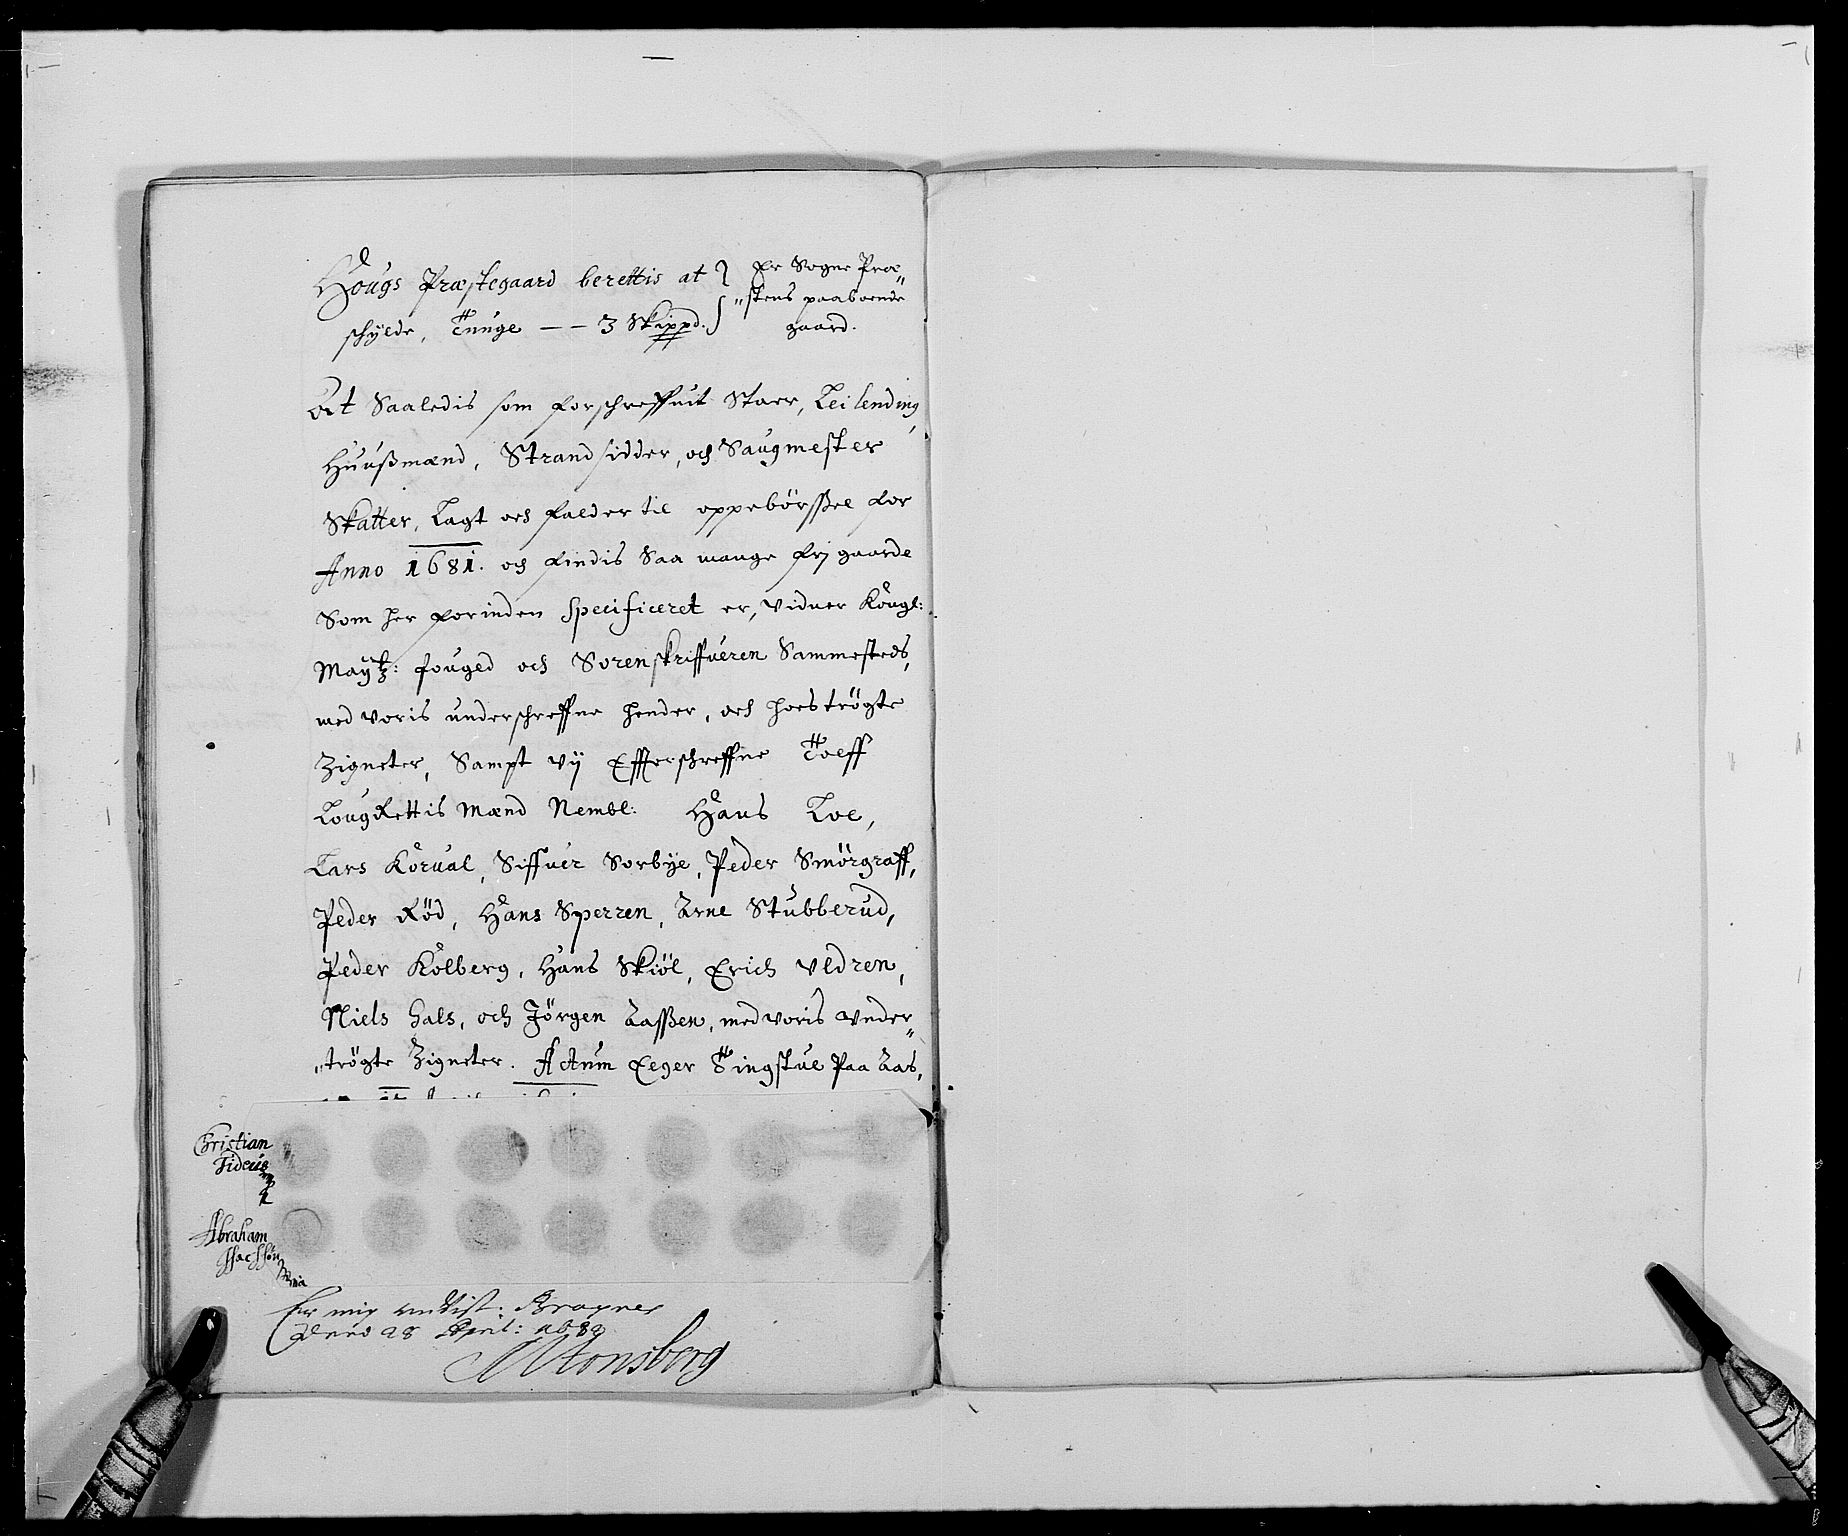 Hougs Præstegaard berettis at
schylde, Tunge -- 3 Skippd.
Er Sogne Præ„
„stens paaboende
gaard.
At Saaledis som forschreffuit Staer, Leilending,
Huußmænd, Strandsidder, och Saugmester
Skatter, Lagt och falder til oppebörßel for
Anno 1681. och findis Saa mange frj gaarde
Som her forinden Specificeret er, vidner Kongl:
Maytz: fouged och Sorenskriffueren Sammesteds,
med voris underschreffne hender, och hoeströgte
Zigneter, Sampt vij Effterschreffne Tolff
LougRettis Mænd Nembl: Hans Loe,
Lars Korual, Siffuer Sorbye, Peder Smörgraff,
Peder Röd, Hans Sperren, Arne Stubberud,
Peder Kolberg, Hans Skiöl, Erich Uldren,
Niels Hals, och Jörgen Aaßen, med voris under„
„trögte Zigneter. Actum Eeger Tingstue Paa Aas,
Christian
Fideus
Abraham
Jsachsøn
Er mig andvist: Bragnes
April:
Tonsberg